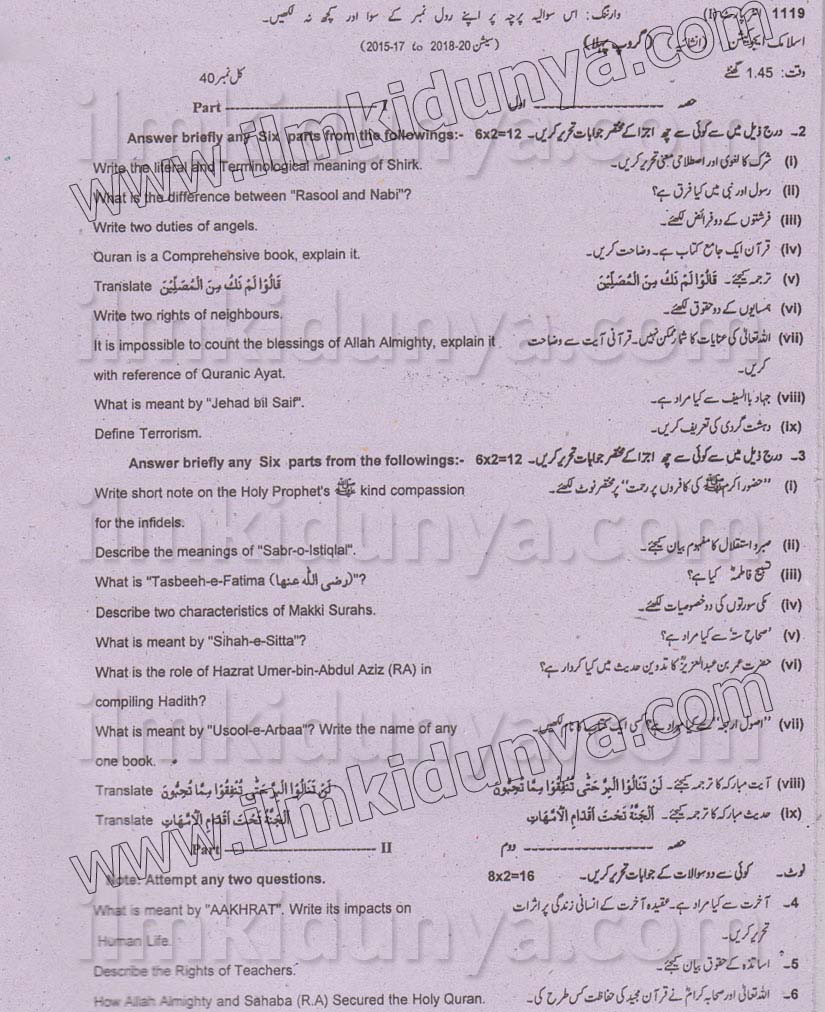 1119 وارننگ: اس سوالیہ پرچہ پر اپنے رول نمبر کے سوا اور کچھ نہ لکھیں۔
(2015-17 to 2018-20 سیشن)
وقت: 1.45 گھنٹے کل نمبر 40
Part I حصہ اول
Answer briefly any Six parts from the followings:- 6x2=12 2۔ درج ذیل میں سے کوئی سے چھ اجزا کے مختصر جوابات تحریر کریں۔
Write the literal and Terminological meaning of Shirk. (i) شرک کا لغوی اور اصطلاحی معنی تحریر کریں۔
What is the difference between "Rasool and Nabi"? (ii) رسول اور نبی میں کیا فرق ہے؟
Write two duties of angels. (iii) فرشتوں کے دو فرائض لکھئے۔
Quran is a Comprehensive book, explain it. (iv) قرآن ایک جامع کتاب ہے۔ وضاحت کریں۔
Translate قَالُوْا لَمْ نَكُ مِنَ الْمُصَلِّيْنَ (v) ترجمہ کیجئے۔ قَالُوْا لَمْ نَكُ مِنَ الْمُصَلِّيْنَ
Write two rights of neighbours. (vi) ہمسایوں کے دو حقوق لکھئے۔
It is impossible to count the blessings of Allah Almighty, explain it (vii) اللہ تعالیٰ کی عنایات کا شمار ممکن نہیں۔ قرآنی آیت سے وضاحت
with reference of Quranic Ayat. کریں۔
What is meant by "Jehad bil Saif". (viii) جہاد بالسیف سے کیا مراد ہے۔
Define Terrorism. (ix) دہشت گردی کی تعریف کریں۔
Answer briefly any Six parts from the followings:- 6x2=12 3۔ درج ذیل میں سے کوئی سے چھ اجزا کے مختصر جوابات تحریر کریں۔
Write short note on the Holy Prophet's ﷺ kind compassion (i) "حضور اکرم ﷺ کی کافروں پر رحمت" پر مختصر نوٹ لکھئے۔
for the infidels.
Describe the meanings of "Sabr-o-Istiqlal". (ii) صبر و استقلال کا مفہوم بیان کیجئے۔
What is "Tasbeeh-e-Fatima (رضی اللّٰہ عنہا)"? (iii) تسبیح فاطمہؓ کیا ہے؟
Describe two characteristics of Makki Surahs. (iv) مکی سورتوں کی دو خصوصیات لکھئے۔
What is meant by "Sihah-e-Sitta"? (v) 'صحاح ستہ' سے کیا مراد ہے؟
What is the role of Hazrat Umer-bin-Abdul Aziz (RA) in (vi) حضرت عمر بن عبدالعزیزؒ کا تدوین حدیث میں کیا کردار ہے؟
compiling Hadith?
What is meant by "Usool-e-Arbaa"? Write the name of any (vii) "اصول اربعہ" سے کیا مراد ہے؟ کسی ایک کتاب کا نام لکھیں۔
one book.
Translate لَنْ تَنَالُوا الْبِرَّ حَتّٰى تُنْفِقُوْا مِمَّا تُحِبُّوْنَ (viii) آیت مبارکہ کا ترجمہ کیجئے۔ لَنْ تَنَالُوا الْبِرَّ حَتّٰى تُنْفِقُوْا مِمَّا تُحِبُّوْنَ
Translate اَلْجَنَّةُ تَحْتَ اَقْدَامِ الْاُمَّهَاتِ (ix) حدیث مبارکہ کا ترجمہ کیجئے۔ اَلْجَنَّةُ تَحْتَ اَقْدَامِ الْاُمَّهَاتِ
Part II حصہ دوم
Note: Attempt any two questions. 8x2=16 نوٹ۔ کوئی سے دو سوالات کے جوابات تحریر کریں۔
What is meant by "AAKHRAT". Write its impacts on 4۔ آخرت سے کیا مراد ہے۔ عقیدہ آخرت کے انسانی زندگی پر اثرات
Human Life. تحریر کریں۔
Describe the Rights of Teachers. 5۔ اساتذہ کے حقوق بیان کیجئے۔
How Allah Almighty and Sahaba (R.A) Secured the Holy Quran. 6۔ اللہ تعالیٰ اور صحابہ کرامؓ نے قرآن مجید کی حفاظت کس طرح کی۔
www.ilmkidunya.com
www.ilmkidunya.com
ilmkidunya.com
ilmkidunya.com
ilmkidunya.com
ilmkidunya.com
ilmkidunya.com